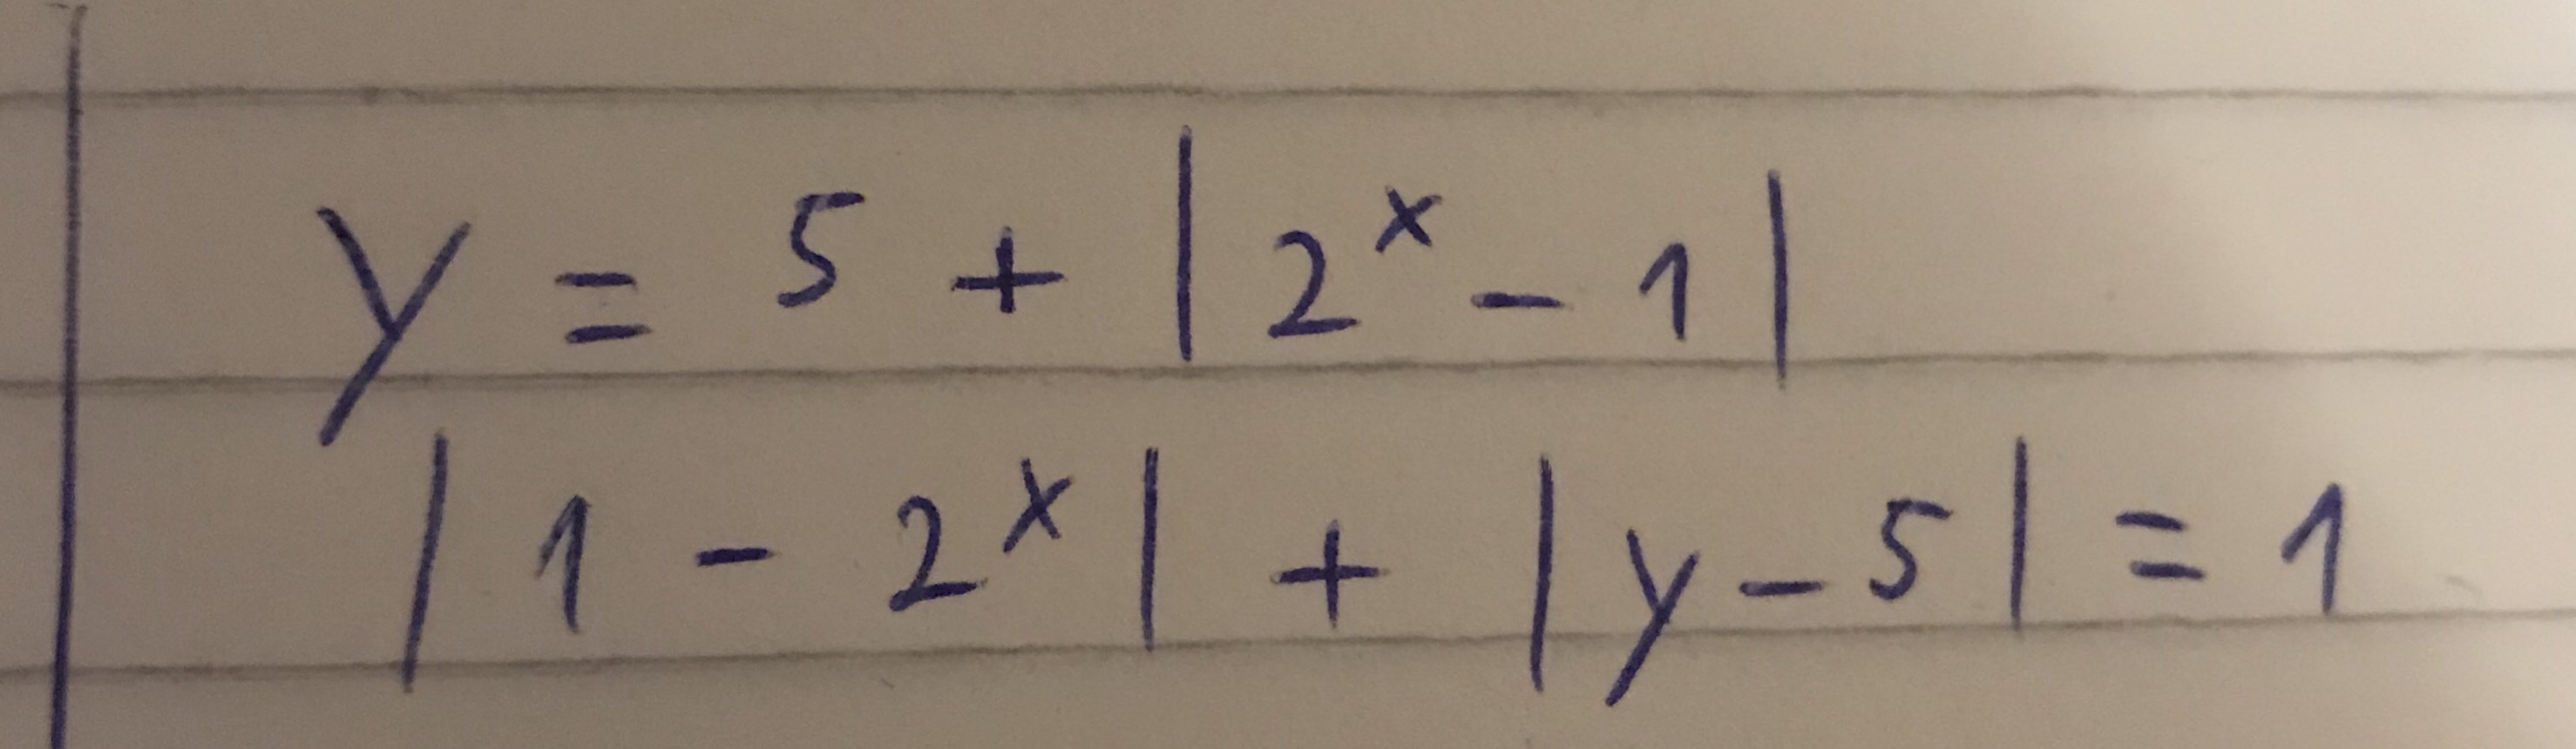 y = 5 + | 2ˣ - 1 |
| 1 - 2ˣ | + | y - 5 | = 1